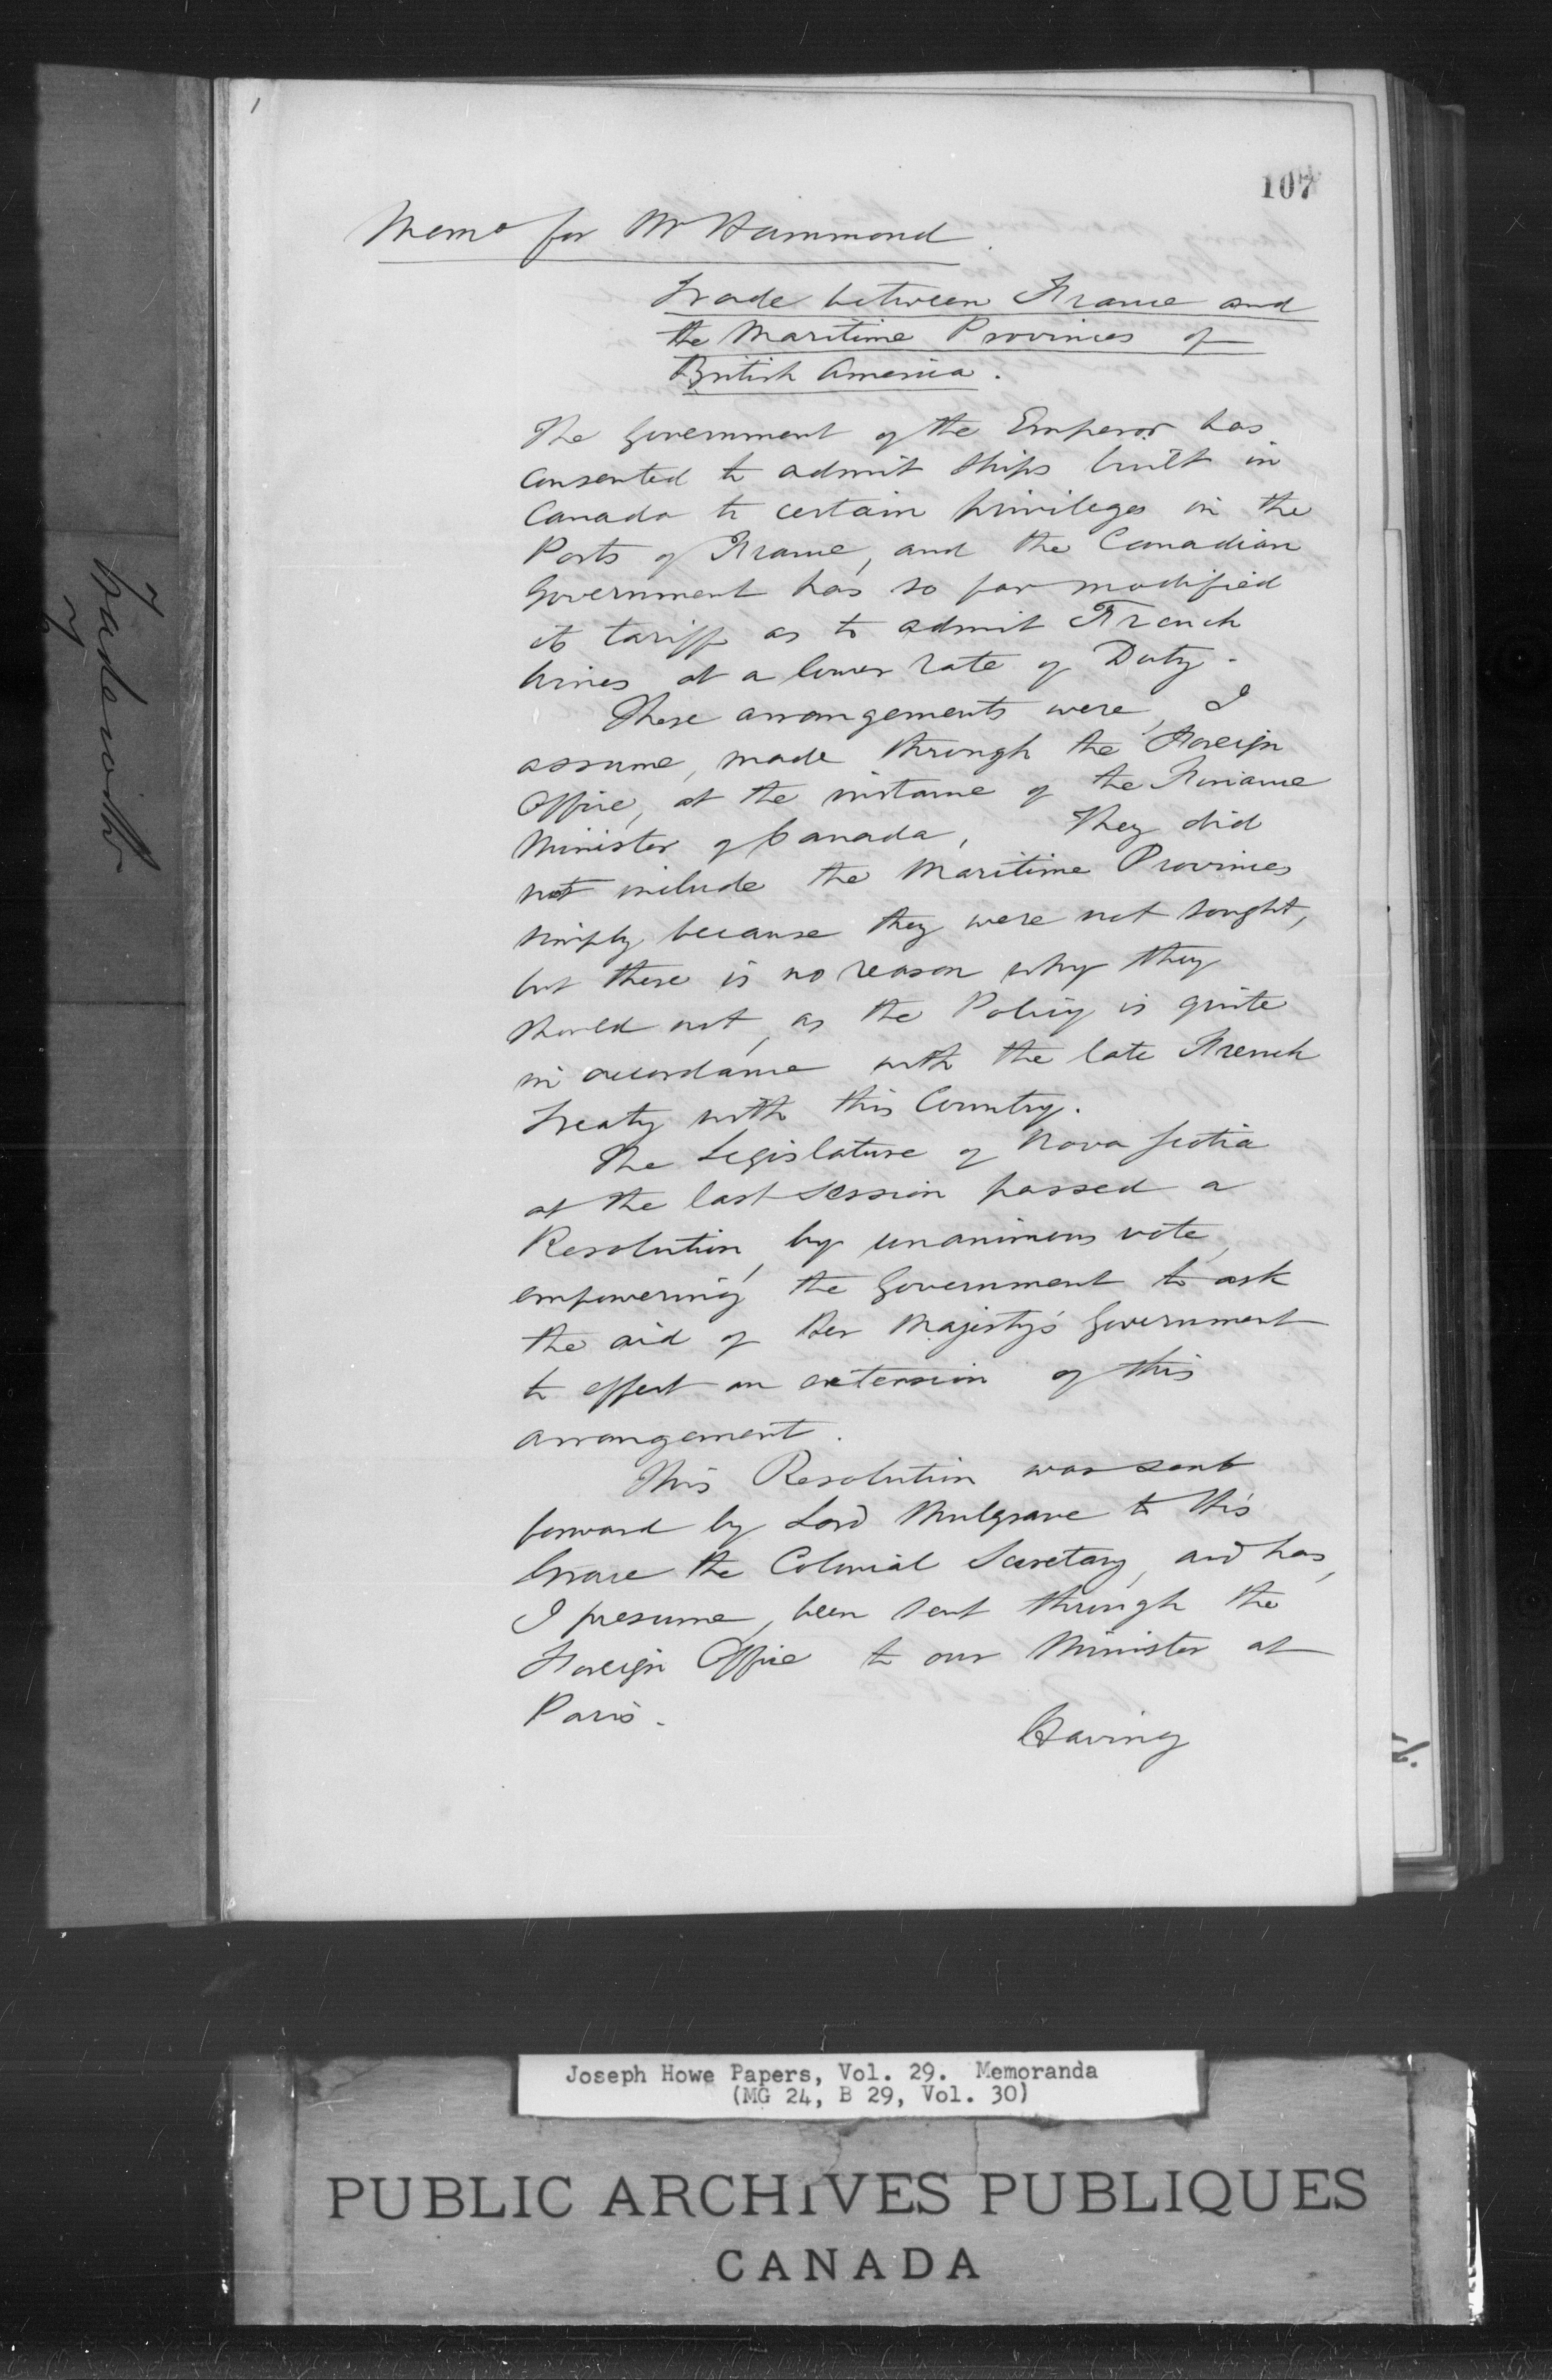 107
Memo for Mr Hammond
Trade between France and
the Maritime Provinces of
British America.
The Government of the Emperor has
consented to admit Ships built in
Canada to certain privileges in the
Ports of France, and the Canadian
Government has so far modified
its tariff as to admit French
wines at a lower rate of Duty.
These arrangements were, I
assume, made through the Foreign
Office, at the instance of the Finance
Minister of Canada. They did
not include the Maritime Provinces
simply because they were not sought,
but there is no reason why they
should not, as the Policy is quite
in accordance with the late French
Treaty with this Country.
The Legislature of Nova Scotia
at the last Session passed a
Resolution, by unanimous vote,
empowering the Government to ask
the aid of Her Majesty's Government
to effect an extension of this
arrangement.
This Resolution was sent
forward by Lord Mulgrave to His
Grace the Colonial Secretary, and has,
I presume, been sent through the
Foreign Office to our Minister at
Paris.
Having
Joseph Howe Papers, Vol. 29. Memoranda
(MG 24, B 29, Vol. 30)
PUBLIC ARCHIVES PUBLIQUES
CANADA